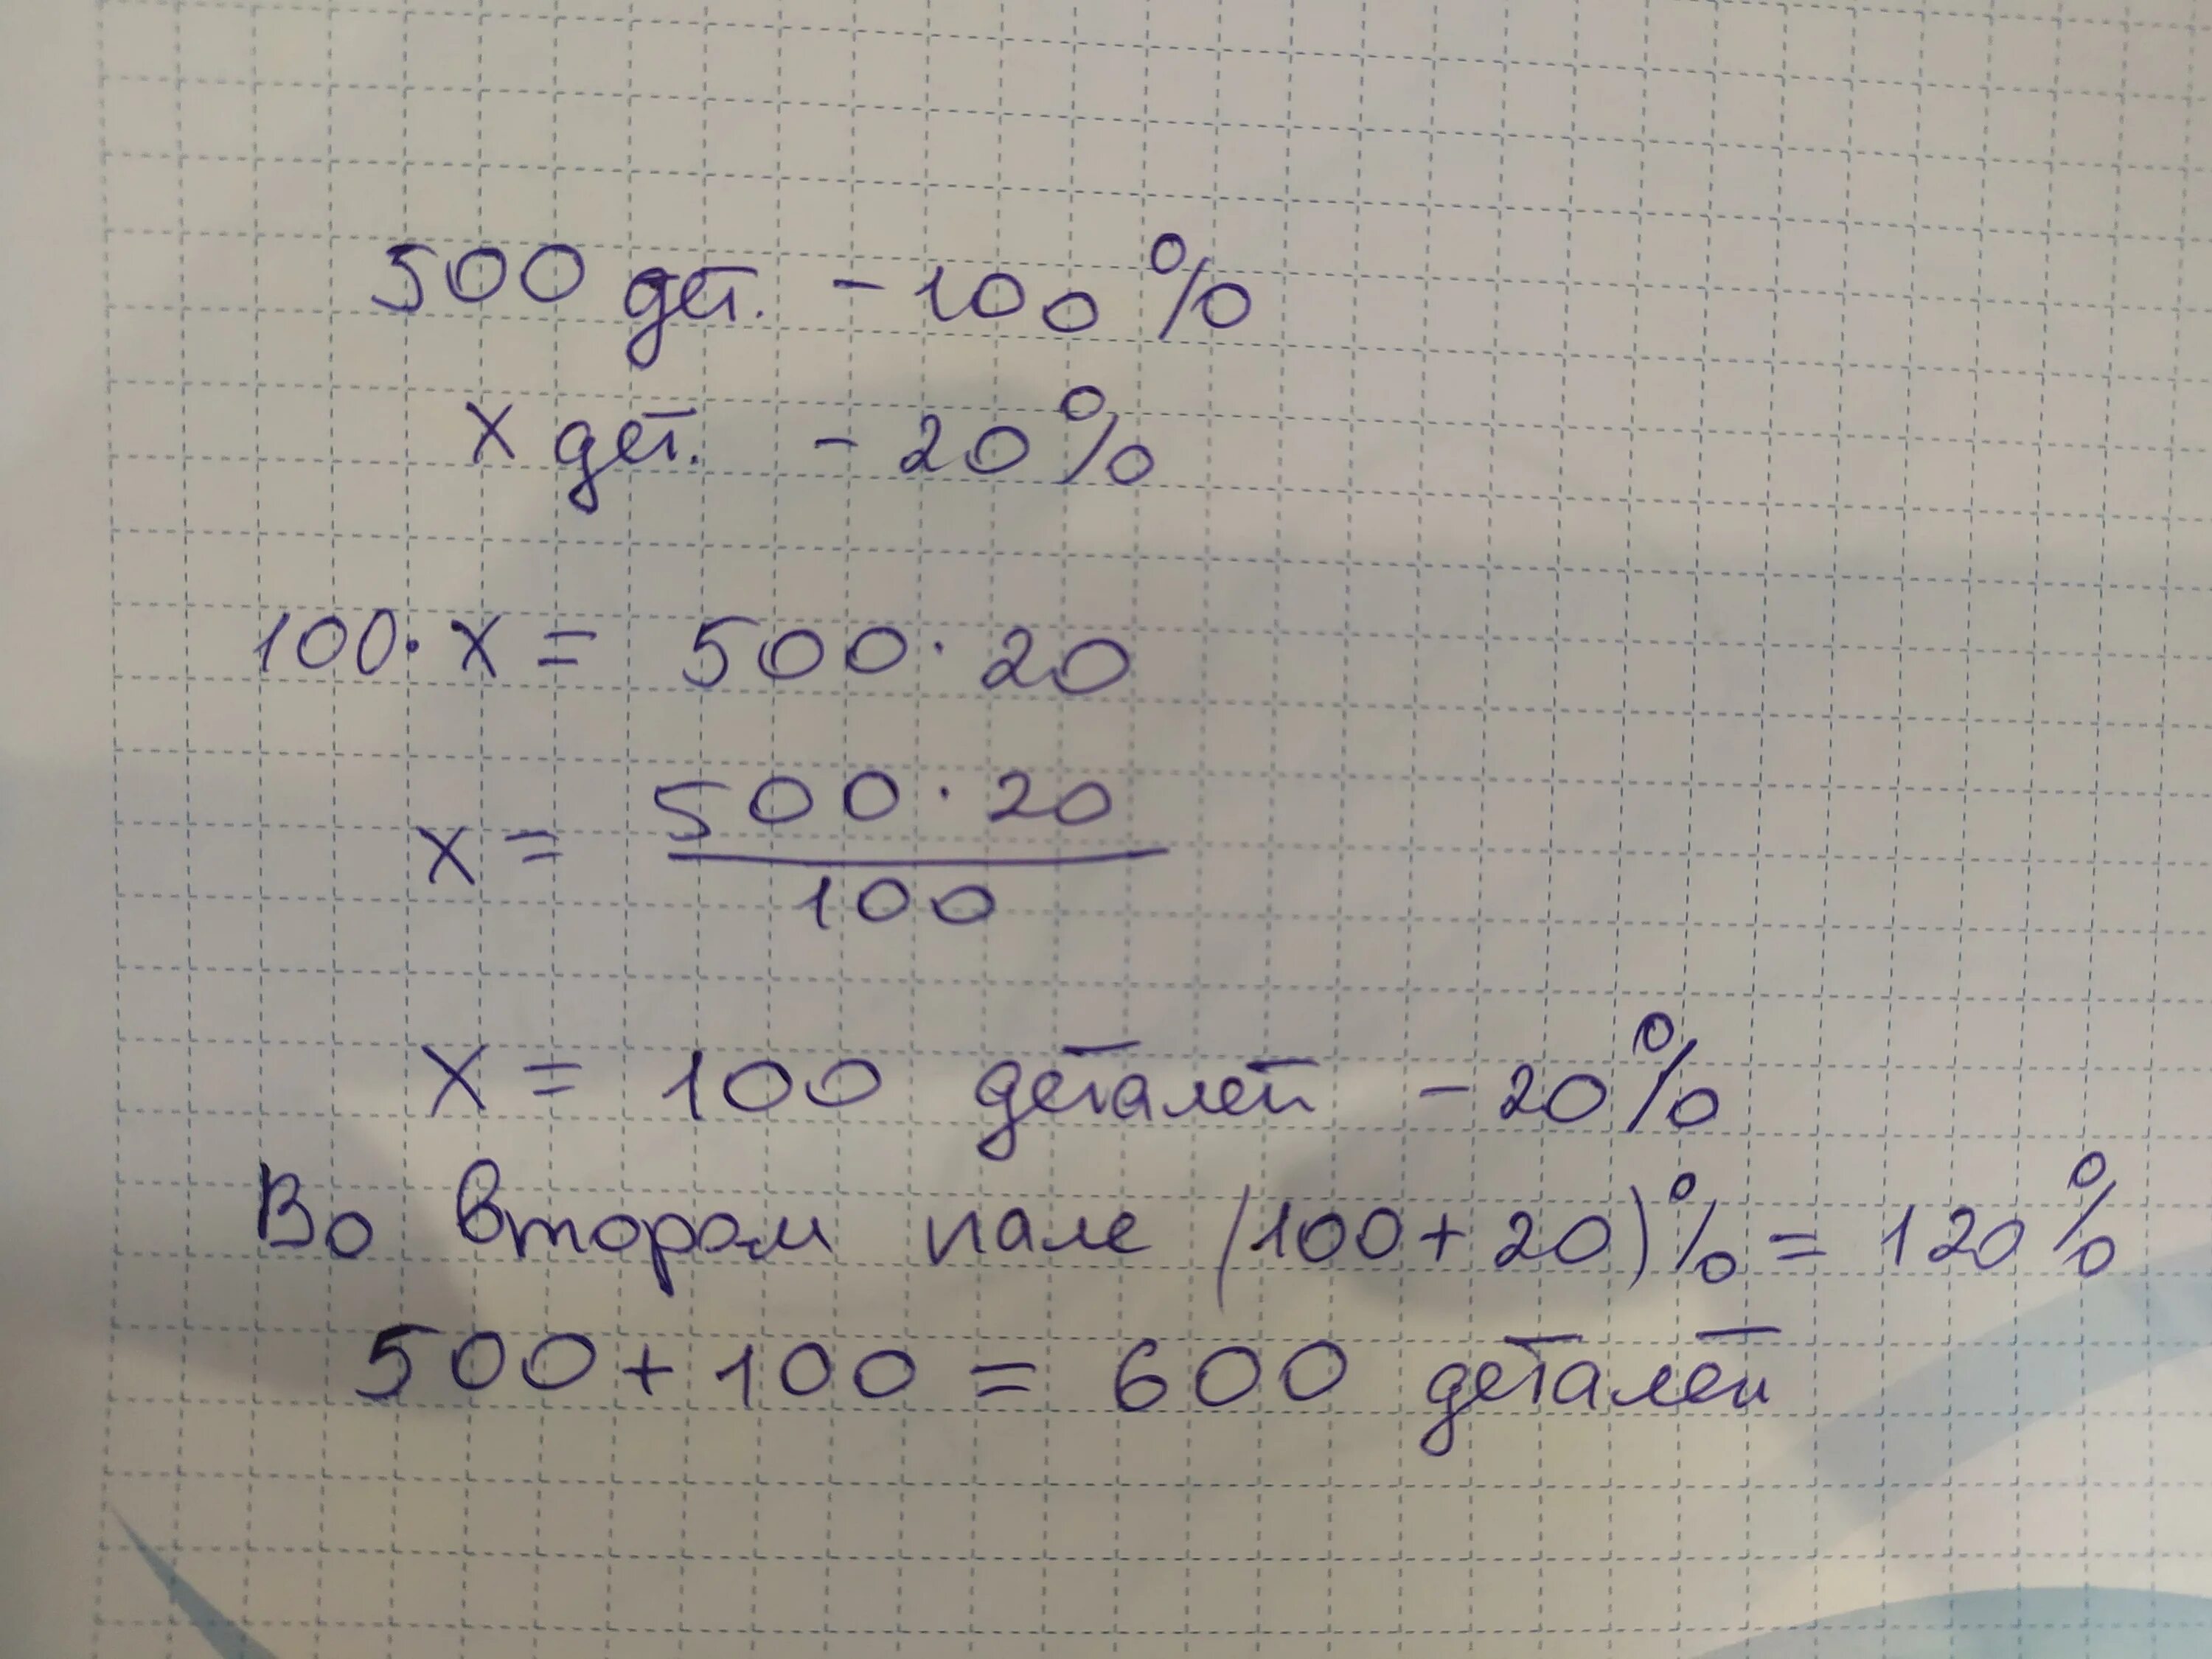 500 дет. - 100%
x дет. - 20%
100 · x = 500 · 20
x = 500 · 20 / 100
x = 100 деталей - 20%
Во втором (100 + 20)% = 120%
500 + 100 = 600 деталей